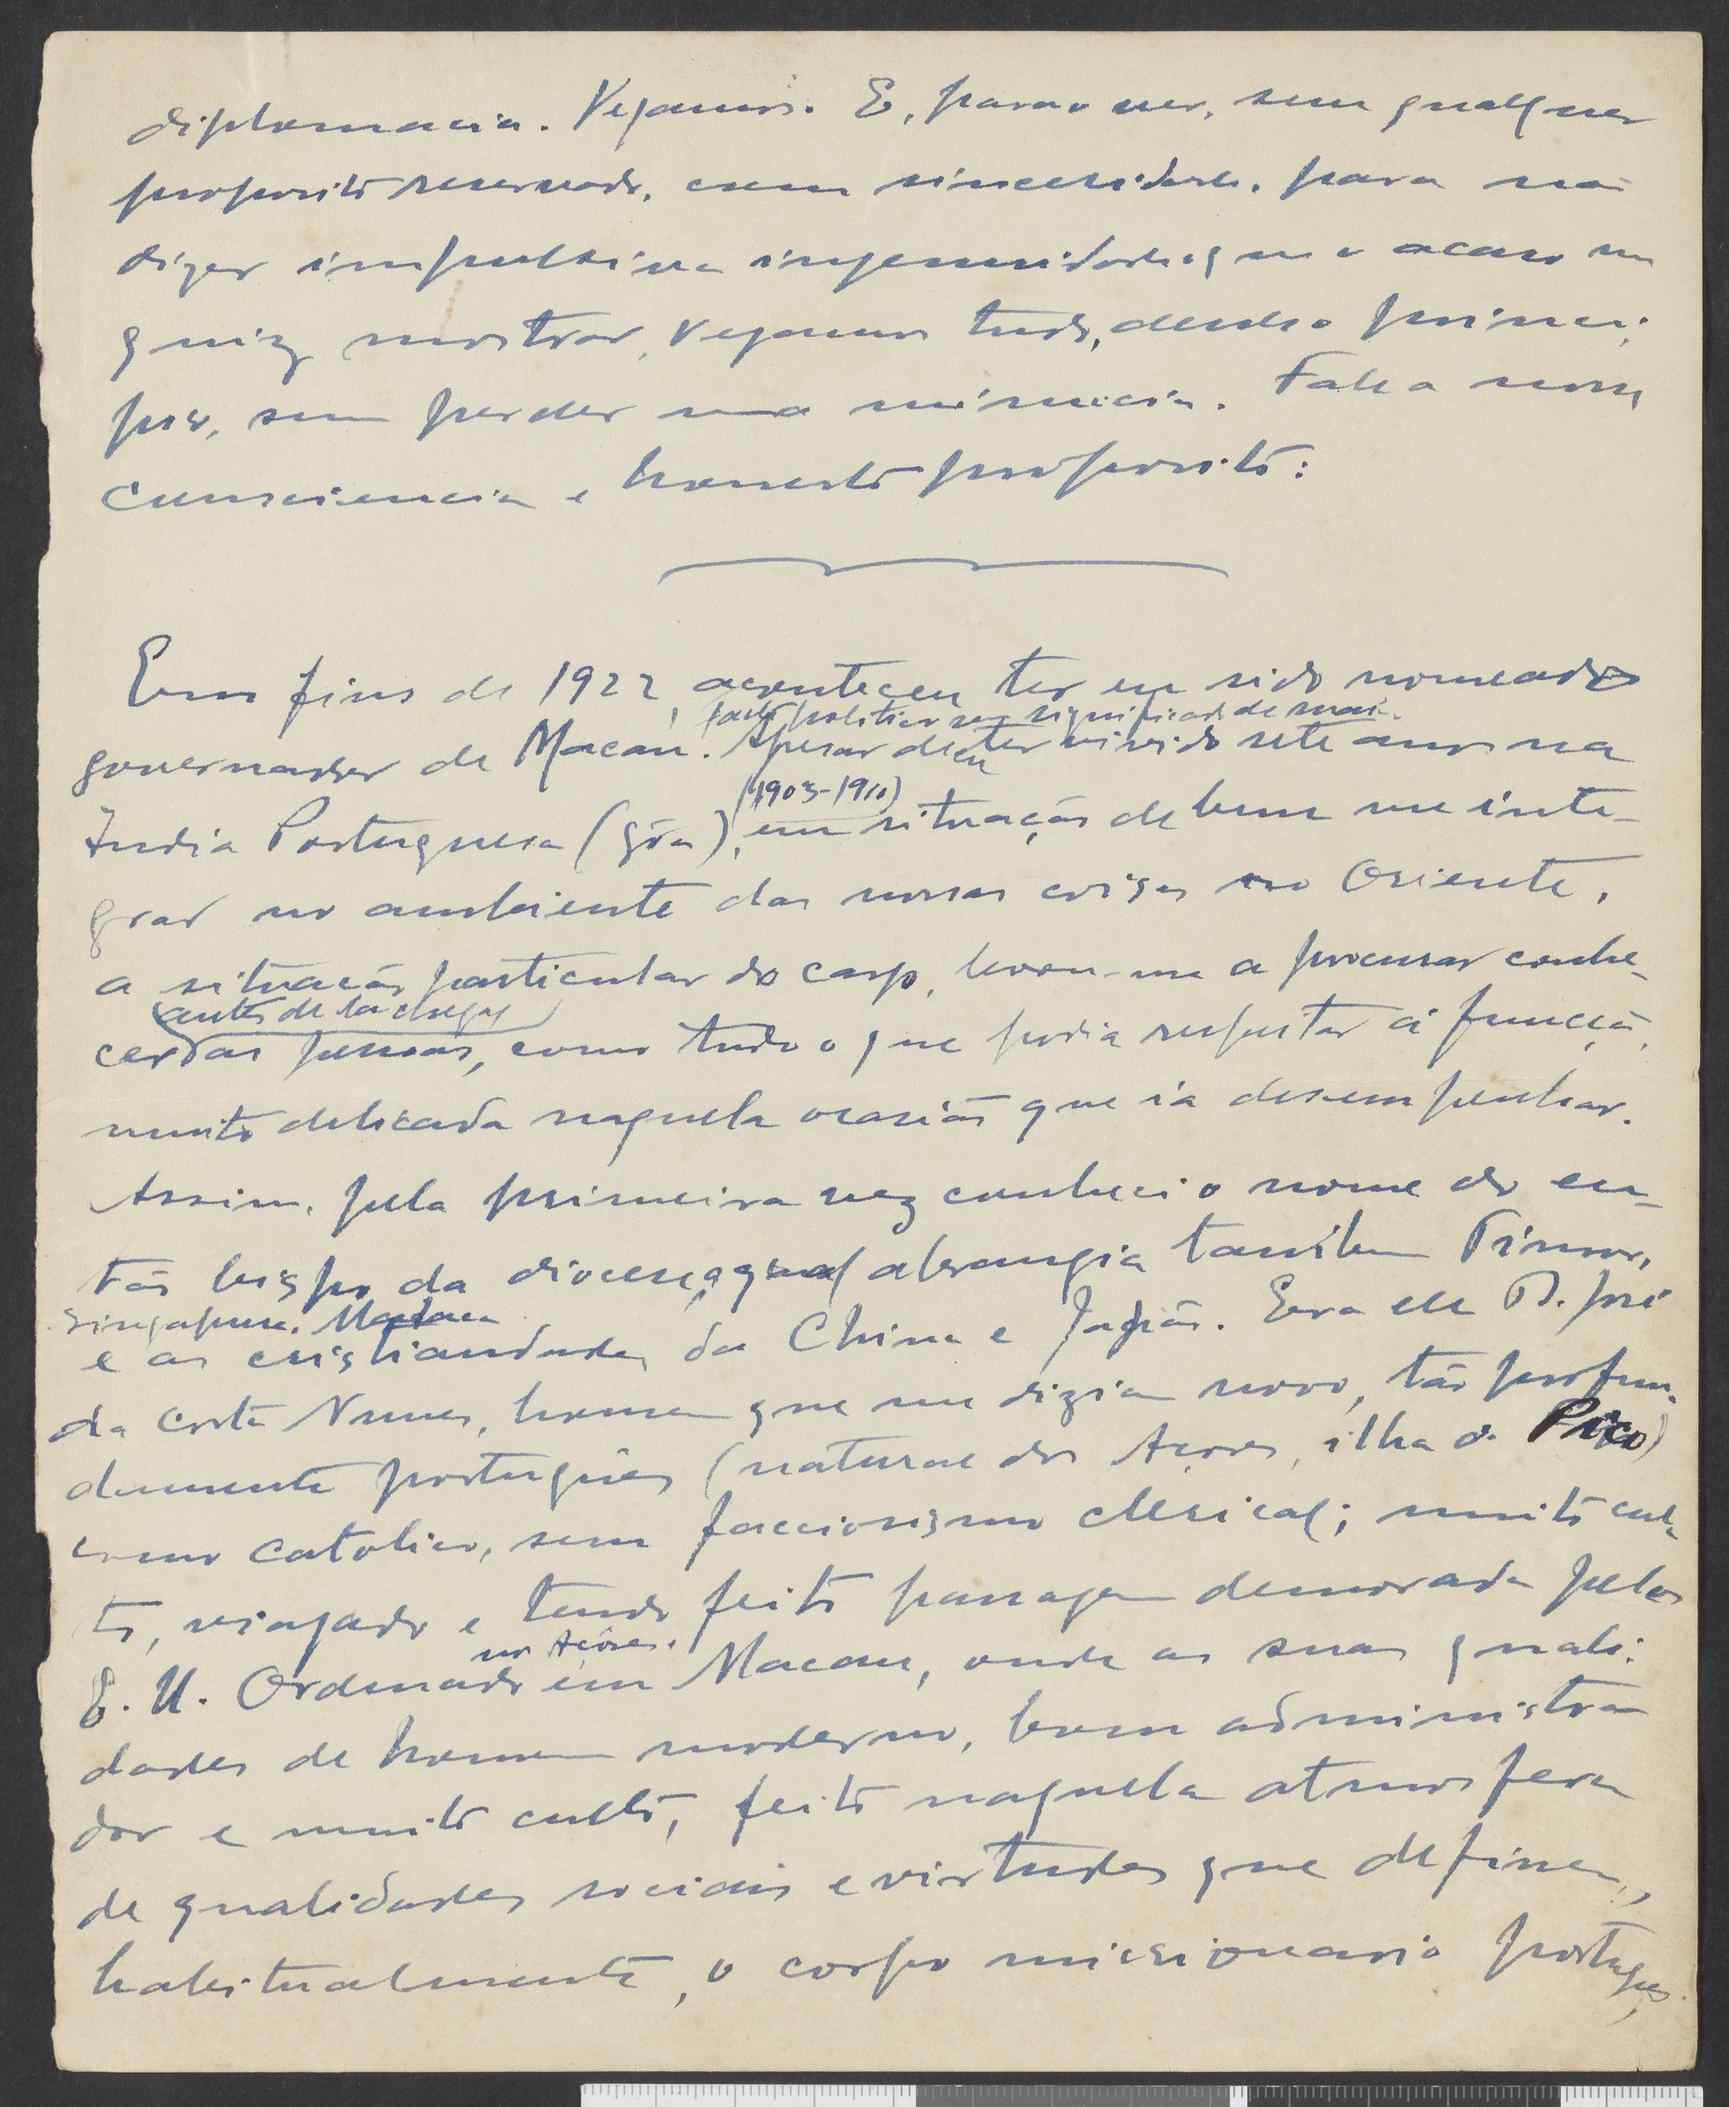 diplomacia. Vejamos. E, para o ver, sem qualquer
proposito reservado, com sinceridade, para não
dizer impulsiva ingenuidade que o acaso me
quiz mostrar, vejamos tudo, desde o princi-
pio, sem perder uma minucia. Fale a nossa
consciencia e honesto proposito:
Em fins de 1922, aconteceu ter eu sido nomeado
facto politico sem significado de maior.
governador de Macau. Apesar de eu ter vivido sete anos na
(1903-1910)
India Portuguesa (Gôa), em situação de bem me inte-
grar no ambiente das nossas coisas no Oriente,
a situação particular do cargo, levou-me a procurar conhe-
antes de lá chegar
cer das pessoas, como tudo o que podia respeitar á funcção,
muito delicada naquela ocasião que ia desempenhar.
Assim, pela primeira vez conheci o nome do en-
tão bispo da diocese, a qual abrangia também Timor,
Singapura, Malaca
e as cristiandades da China e Japão. Era ele D. José
da Costa Nunes, homem que me diziam novo, tão profun-
damente português (natural dos Açores, ilha do Pico)
como catolico, sem faccionismo clerical; muito cul-
to, viajado e tendo feito passagem demorada pelos
nos Açores,
E. U. Ordenado em Macau, onde as suas quali-
dades de homem moderno, bom administra-
dor e muito culto, feito naquela atmosfera
de qualidades sociais e virtudes que definem,
habitualmente, o corpo missionario português,